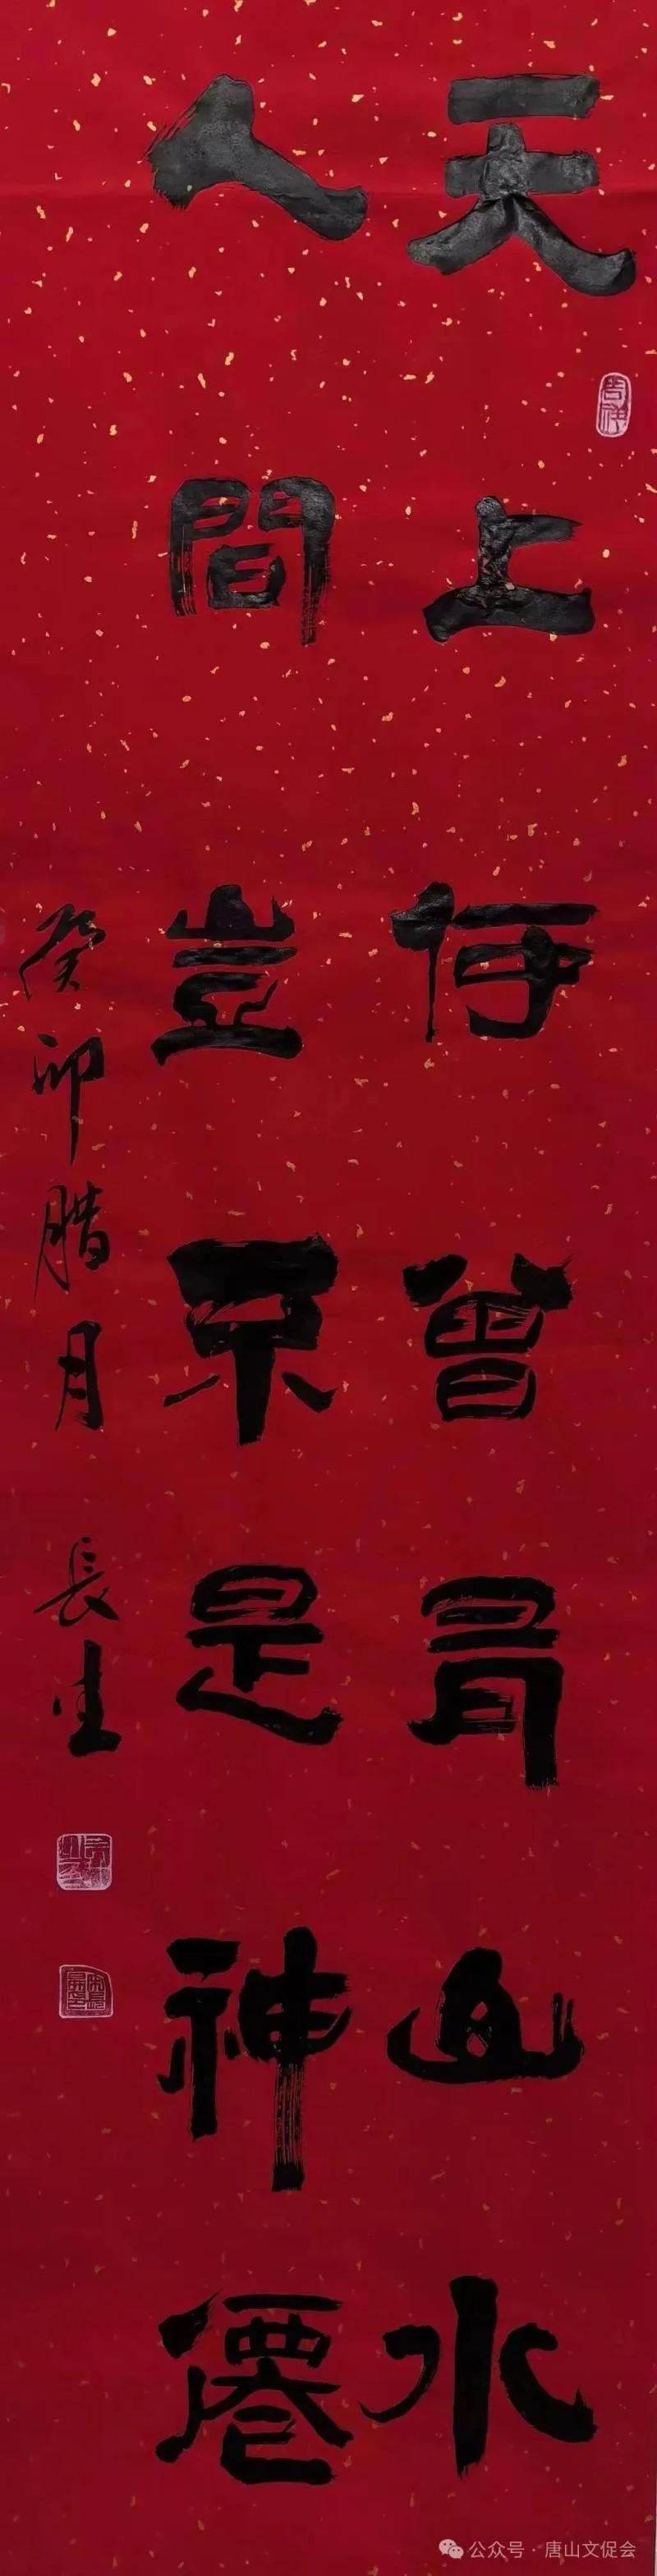 天上何曾有山水
人間豈不是神僊
癸卯腊月 長生
吉祥
公众号·唐山文促会